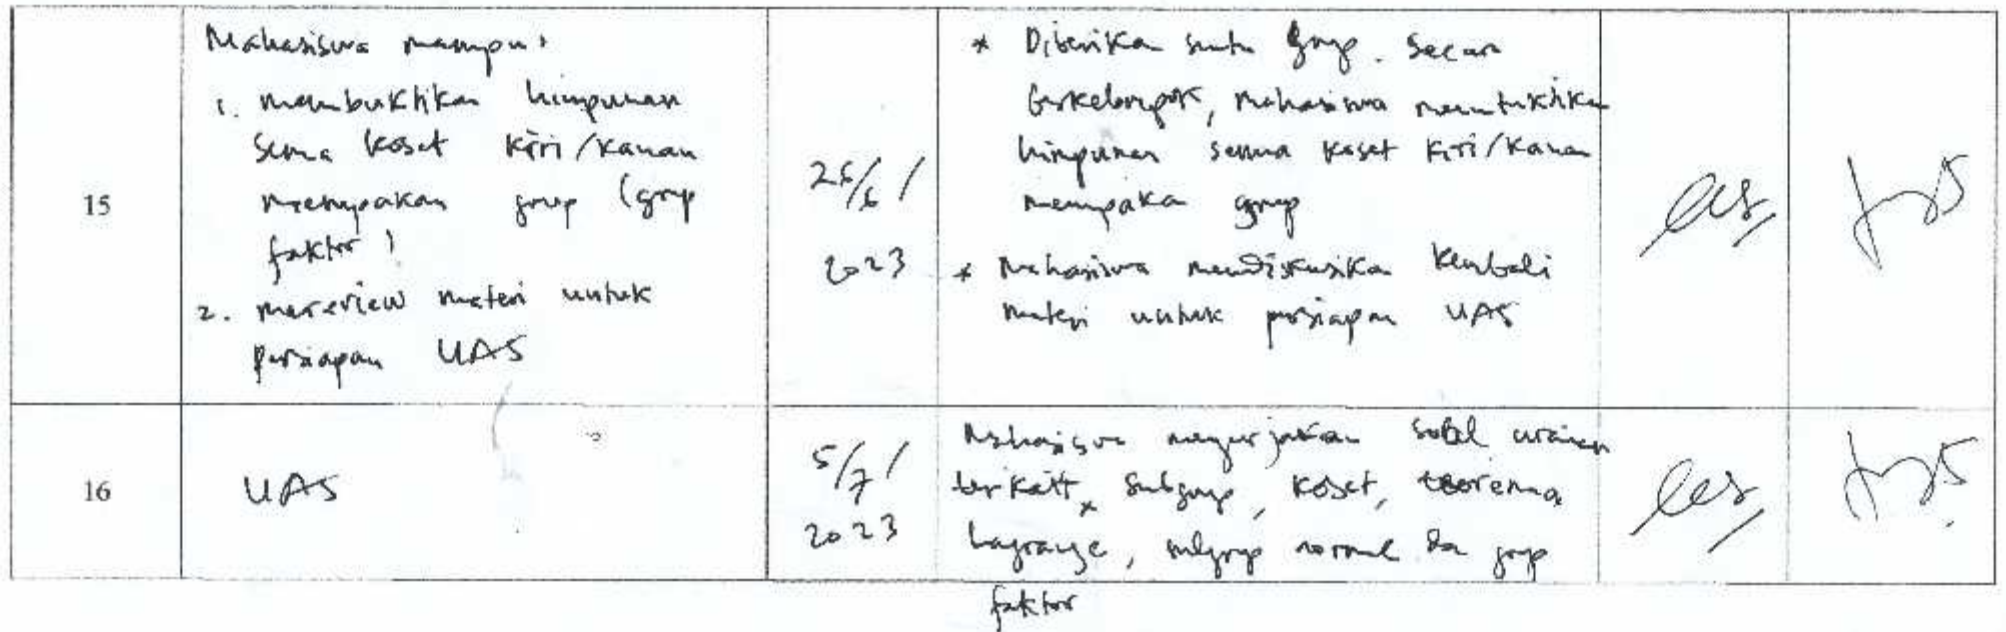 15
Mahasiswa mampu:
1. membuktikan himpunan
semua koset kiri/kanan
merupakan grup (grup
faktor)
2. mereview materi untuk
persiapan UAS
26/6/
2023
* Diberikan suatu grup. Secara
berkelompok, mahasiswa membuktikan
himpunan semua koset kiri/kanan
merupakan grup
* Mahasiswa mendiskusikan kembali
materi untuk persiapan UAS
16
UAS
5/7/
2023
Mahasiswa mengerjakan soal uraian
terkait subgrup, koset, teorema
Lagrange, subgrup normal dan grup
faktor